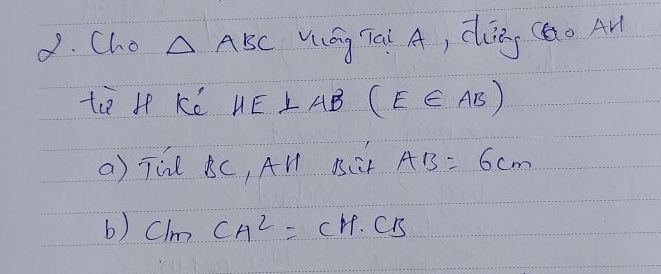 2. Cho △ ABC vuông tại A, đường cao AH
từ H kẻ HE ⊥ AB (E ∈ AB)
a) Tính BC, AH Biết AB = 6cm
b) C/m CA² = CH.CB